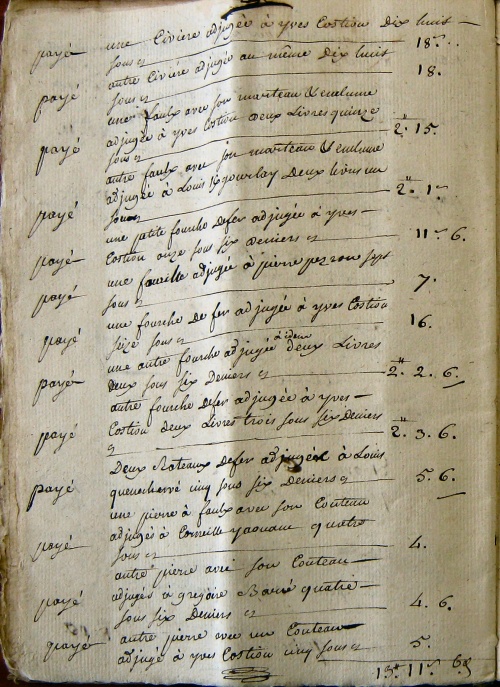 payé une Civiere adjugée à yves Costiou Dix huit
sous 18.
payé autre Civiere adjugée au même Dix huit
sous 18.
payé une faulx avec son marteau & enclume
adjugée à yves Costiou deux Livres quinze
sous 2.# 15.
payé autre faulx avec son marteau & enclume
adjugée à Louis Deux livres un
sous 2.# 1.
payé une petite fourche de fer adjugée à yves
Costiou onze sous six Deniers 11. 6.
payé une faucille adjugée à pierre sept
sous 7.
payé une fourche De fer adjugée à yves Costiou
seize sous 16.
payé une autre fourche adjugée à idem deux Livres
Deux sous six Deniers 2.# 2. 6.
payé autre fourche de fer adjugée à yves
Costiou deux Livres trois sous six Deniers
2.# 3. 6.
payé Deux Rateaux de fer adjugée à Louis
cinq sous six Deniers 5. 6.
payé une pierre à faulx avec son Couteau
adjugés à Corneille yaouanc quatre
sous 4.
payé autre pierre avec son Couteau
adjugés à gregoire quatre
sous six Deniers 4. 6.
payé autre pierre avec un Couteau
adjugé à yves Costiou cinq sous 5.
13.# 11.